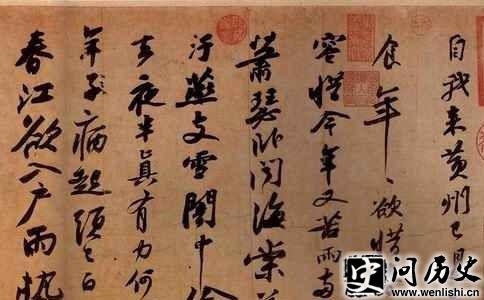 自我來黃州已
食年〻欲惜
容惜今年又苦雨兩
蕭瑟卧聞海棠
汙燕支雪闇中
去夜半真有力何
年子病起頭已白
春江欲入戶雨勢
史问历史
www.wenlishi.cn